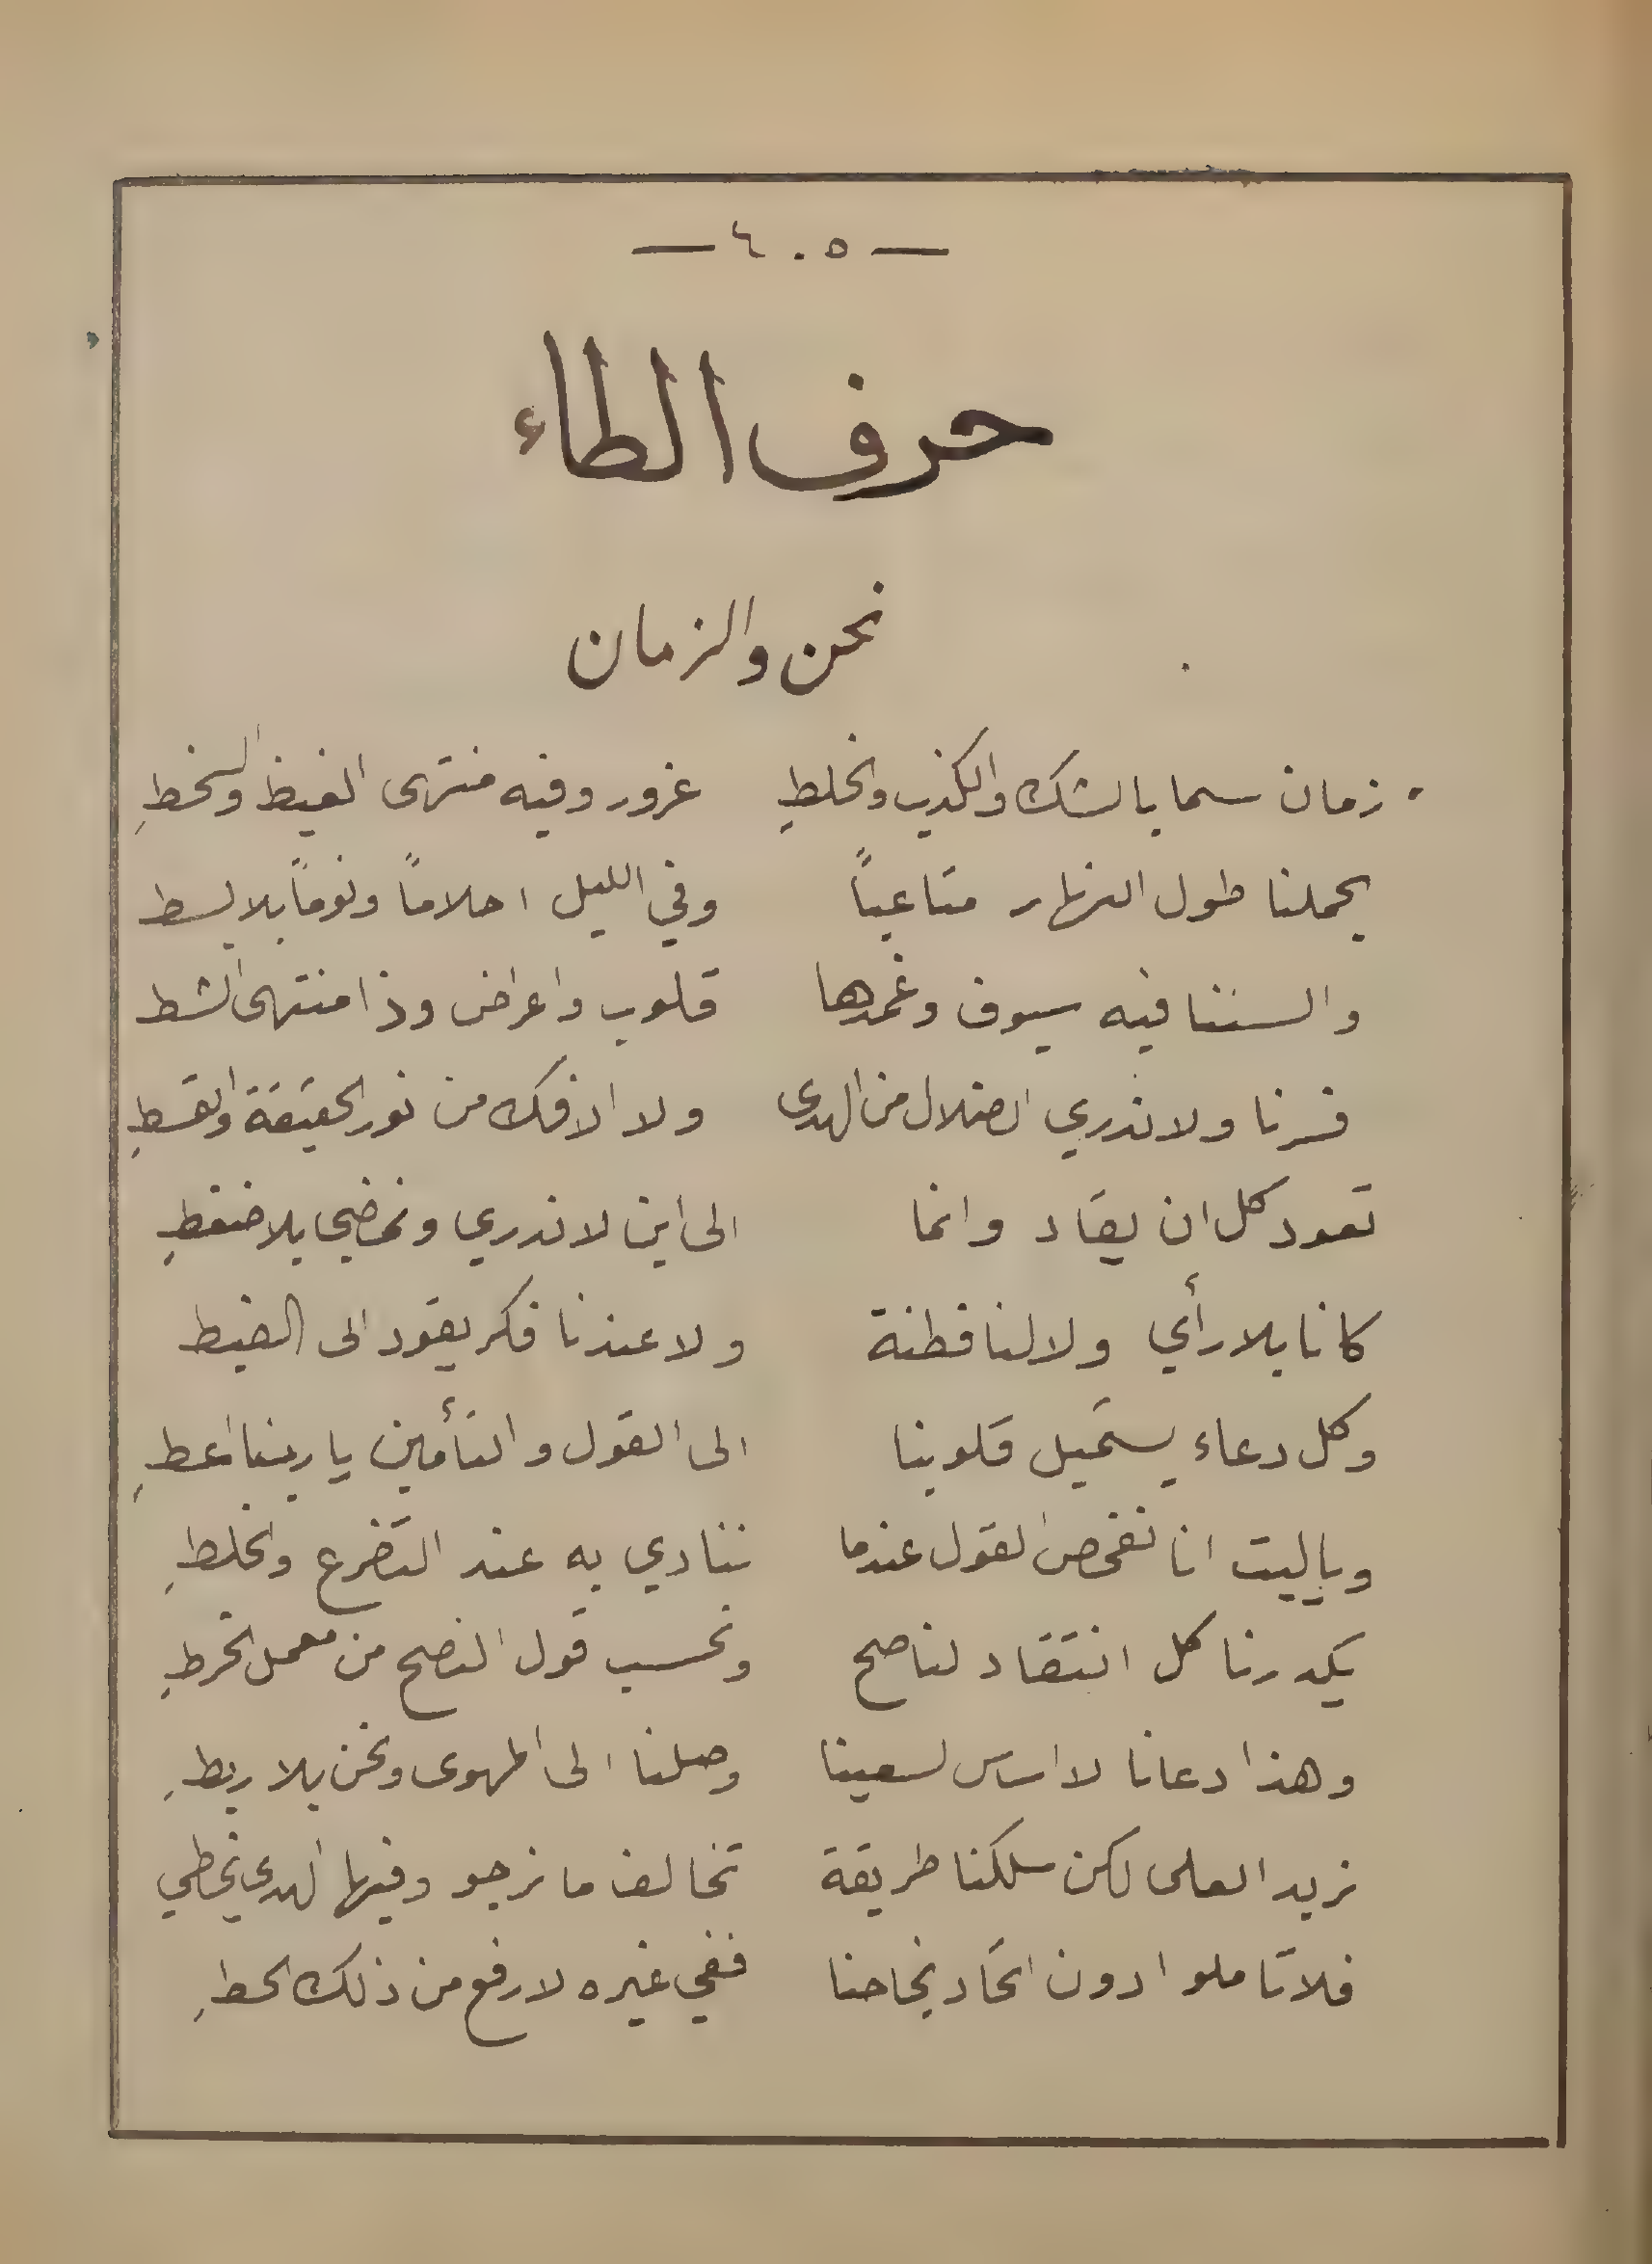 — ٤٠٥ —
حرف الطاء
نحن والزمان
زمان سما بالشك والكذب والخلطِ غرور وفيه منتهى الغيظ والسخطِ
يحملنا طول النهار متاعباً وفي الليل احلاماً ونوماً بلا بسط
والسننا فيه سيوف وغمدها قلوب واعراض وذا منتهى الشط
فسرنا ولا ندري الضلال من الهدى ولا الافك من نور الحقيقة والقسطِ
تعود كل ان يقاد وانما الى اين لا ندري ونمضي بلا ضغطِ
كانا بلا رأي ولا لنا فطنة ولا عندنا فكر يقود الى الضبط
وكل دعاء يستميل قلوبنا الى القول والتأمين يا ربنا اعطِ
وياليت انا نفحص القول عندما ننادي به عند التضرع والخلطِ
يكدرنا كل انتقاد لناصح ونحسب قول النصح من معمل الخرطِ
وهذا دعانا لا اساس لسعينا وصلنا الى المهوى ونحن بلا ربطِ
نريد العلى لكن سلكنا طريقة تخالف ما نرجو وفيها الهدى نخطي
فلا تاملوا دون اتحاد نجاحنا ففي غيره لا رفع من ذلك الحطِ